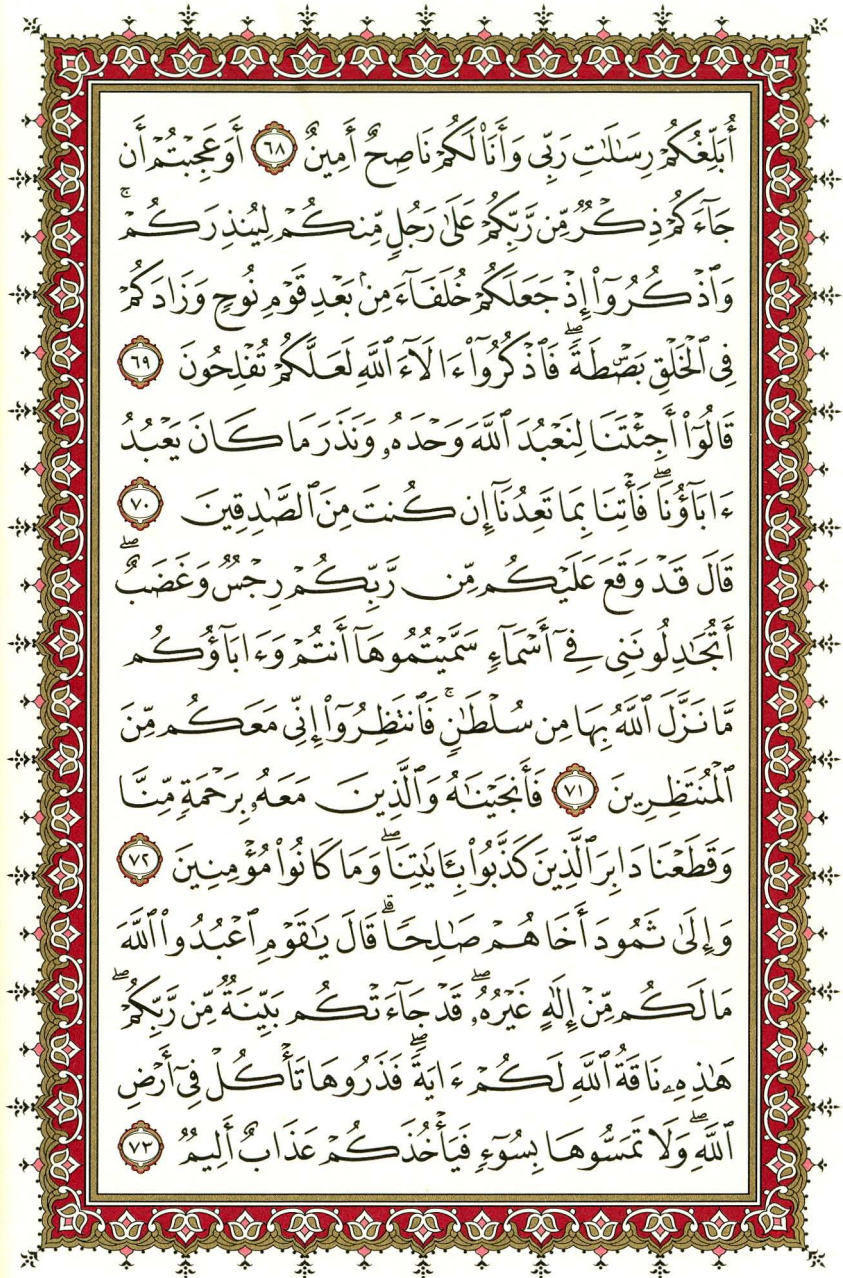 أُبَلِّغُكُمْ رِسَٰلَٰتِ رَبِّى وَأَنَا۠ لَكُمْ نَاصِحٌ أَمِينٌ ٦٨ أَوَعَجِبْتُمْ أَن
جَآءَكُمْ ذِكْرٌ مِّن رَّبِّكُمْ عَلَىٰ رَجُلٍ مِّنكُمْ لِيُنذِرَكُمْ ۚ
وَٱذْكُرُوٓا۟ إِذْ جَعَلَكُمْ خُلَفَآءَ مِنۢ بَعْدِ قَوْمِ نُوحٍ وَزَادَكُمْ
فِى ٱلْخَلْقِ بَصْۜطَةً ۖ فَٱذْكُرُوٓا۟ ءَالَآءَ ٱللَّهِ لَعَلَّكُمْ تُفْلِحُونَ ٦٩
قَالُوٓا۟ أَجِئْتَنَا لِنَعْبُدَ ٱللَّهَ وَحْدَهُۥ وَنَذَرَ مَا كَانَ يَعْبُدُ
ءَابَآؤُنَا ۖ فَأْتِنَا بِمَا تَعِدُنَآ إِن كُنتَ مِنَ ٱلصَّٰدِقِينَ ٧٠
قَالَ قَدْ وَقَعَ عَلَيْكُم مِّن رَّبِّكُمْ رِجْسٌ وَغَضَبٌ ۖ
أَتُجَٰدِلُونَنِى فِىٓ أَسْمَآءٍ سَمَّيْتُمُوهَآ أَنتُمْ وَءَابَآؤُكُم
مَّا نَزَّلَ ٱللَّهُ بِهَا مِن سُلْطَٰنٍ ۚ فَٱنتَظِرُوٓا۟ إِنِّى مَعَكُم مِّنَ
ٱلْمُنتَظِرِينَ ٧١ فَأَنجَيْنَٰهُ وَٱلَّذِينَ مَعَهُۥ بِرَحْمَةٍ مِّنَّا
وَقَطَعْنَا دَابِرَ ٱلَّذِينَ كَذَّبُوا۟ بِـَٔايَٰتِنَا ۖ وَمَا كَانُوا۟ مُؤْمِنِينَ ٧٢
وَإِلَىٰ ثَمُودَ أَخَاهُمْ صَٰلِحًا ۗ قَالَ يَٰقَوْمِ ٱعْبُدُوا۟ ٱللَّهَ
مَا لَكُم مِّنْ إِلَٰهٍ غَيْرُهُۥ ۖ قَدْ جَآءَتْكُم بَيِّنَةٌ مِّن رَّبِّكُمْ ۖ
هَٰذِهِۦ نَاقَةُ ٱللَّهِ لَكُمْ ءَايَةً ۖ فَذَرُوهَا تَأْكُلْ فِىٓ أَرْضِ
ٱللَّهِ ۖ وَلَا تَمَسُّوهَا بِسُوٓءٍ فَيَأْخُذَكُمْ عَذَابٌ أَلِيمٌ ٧٣